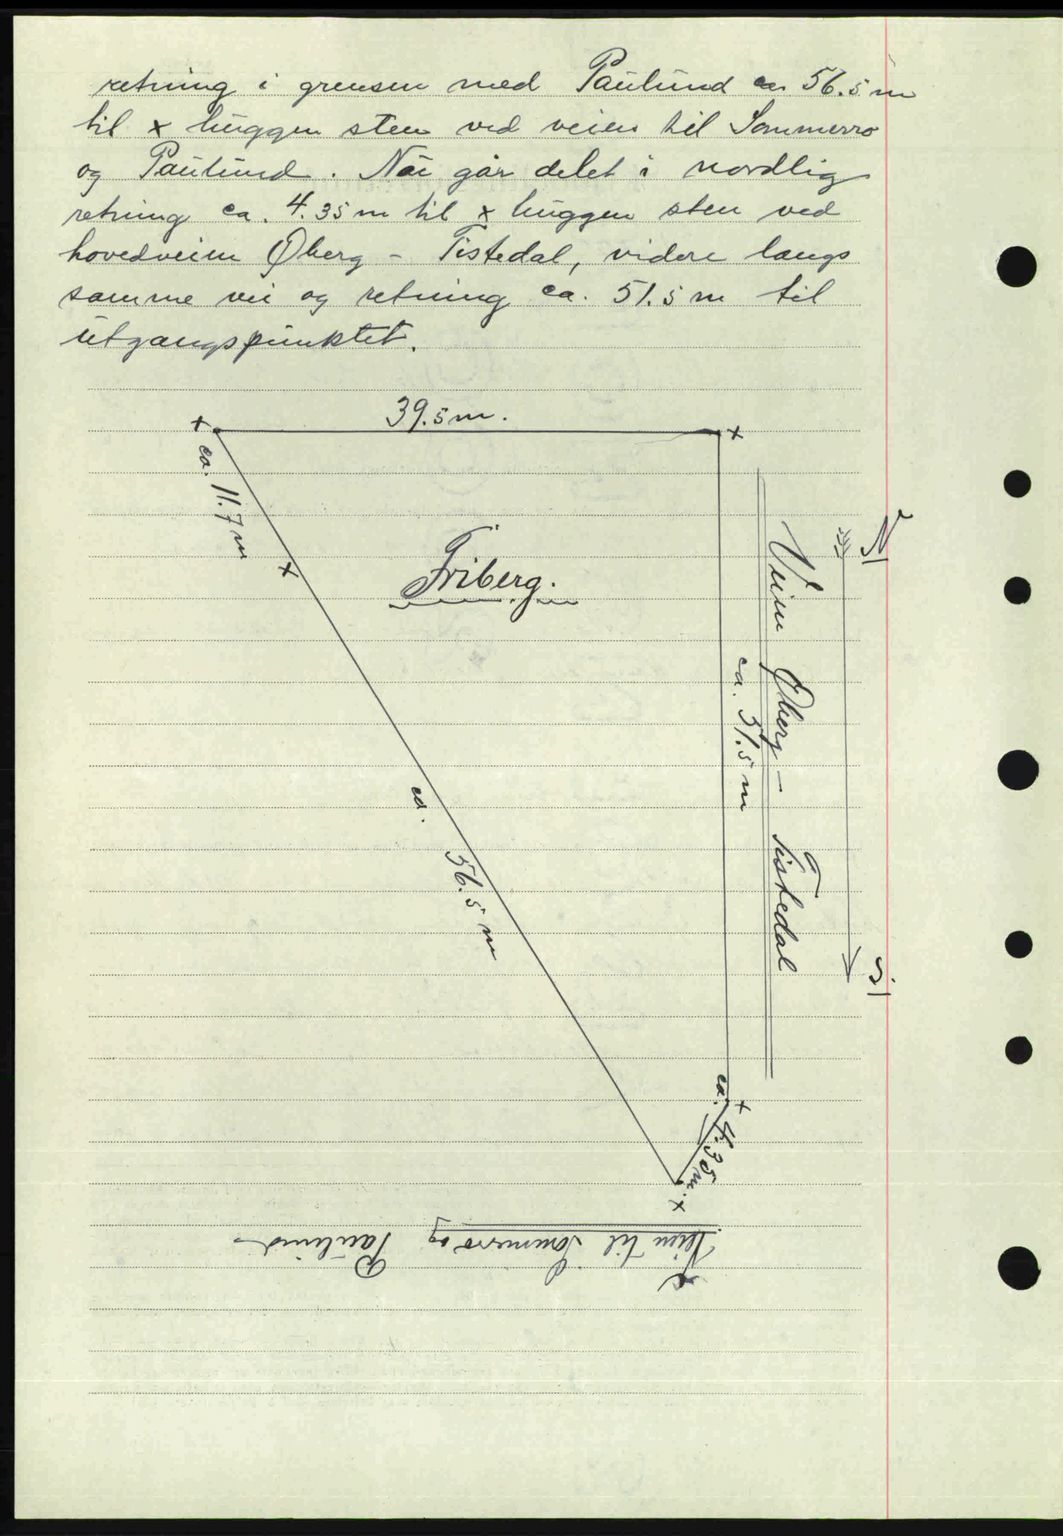 retning i grensen med Paulund ca 56.5 m
til x huggen sten ved veien til Sommerro
og Paulund. Nå går delet i nordlig
retning ca. 4.35 m til x huggen sten ved
hovedveien Øberg - Tistedal, videre langs
samme vei og retning ca. 51.5 m til
utgangspunktet.
39.5 m.
x
x
ca. 11.7 m
x
Friberg.
N
Veien Øberg - Tistedal
ca. 51.5 m
S.
ca. 56.5 m
ca. 4.35 m.
x
x
Veien til Sommerro og Paulund